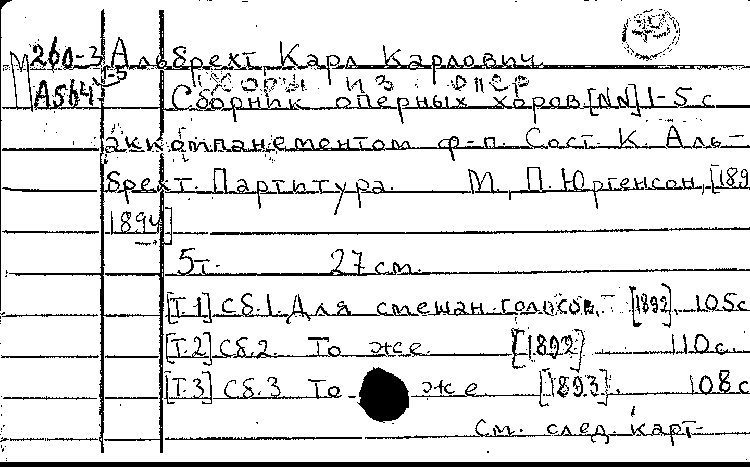 М 260-3 Альбрехт, Карл Карлович.
А564 1-5 Хоры из опер
Сборник оперных хоров [NN] 1-5 с
аккомпанементом ф-п. Сост. К. Аль-
брехт. Партитура. М., П. Юргенсон, [189
1894]
5т. 27 см.
[Т.1] Сб.1. Для смешан. голосов. [1892]. 105с
[Т.2] Сб.2. То же. [1892] 110с.
[Т.3] Сб.3 То же [1893]. 108с
См. след. карт.